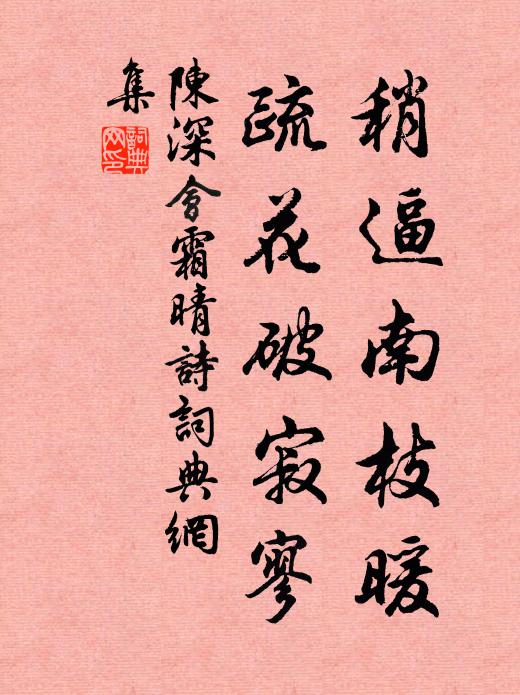 稍逼南枝暖
疏花破寂寥
陳深會霜晴詩詞典網
集
詞典網印